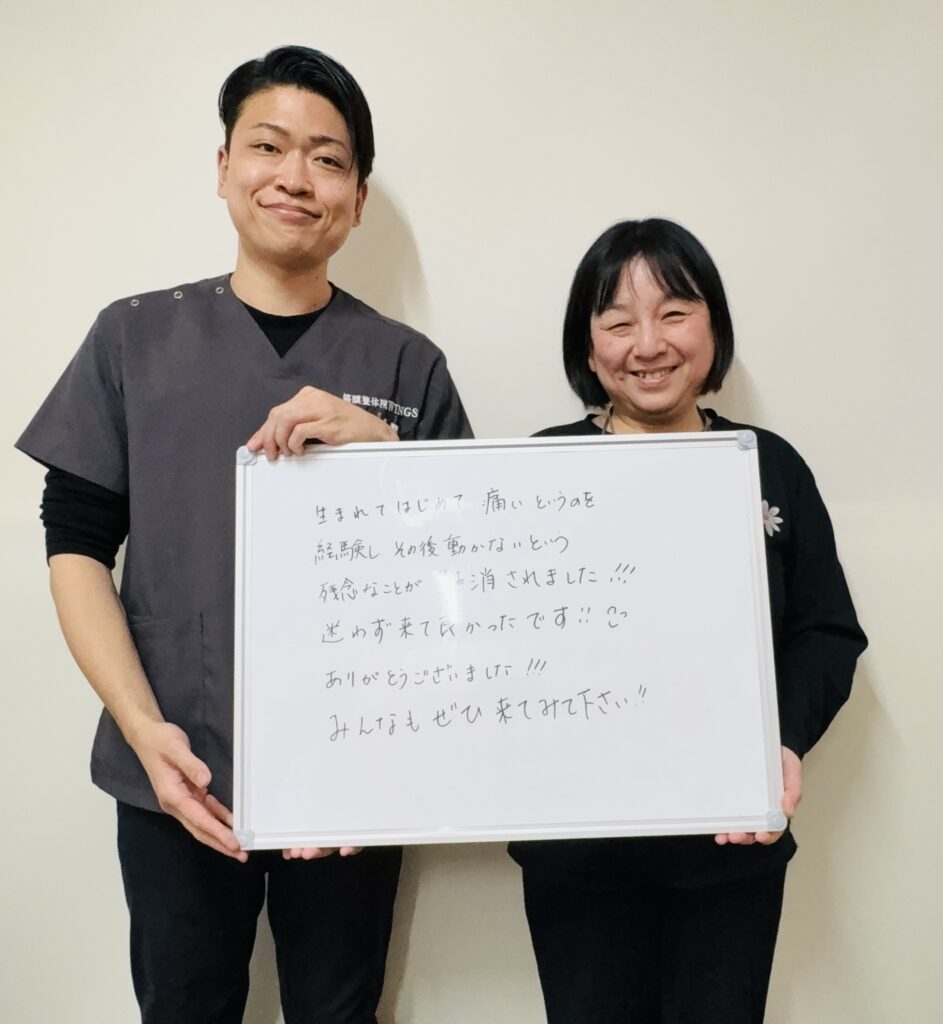 筋膜整体院WINGS
生まれてはじめて、痛いというのを
経験し その後動かないという
残念なことが 消されました!!!
迷わず来て良かったです!!
ありがとうございました!!!
みんなも ぜひ 来てみて下さい!!